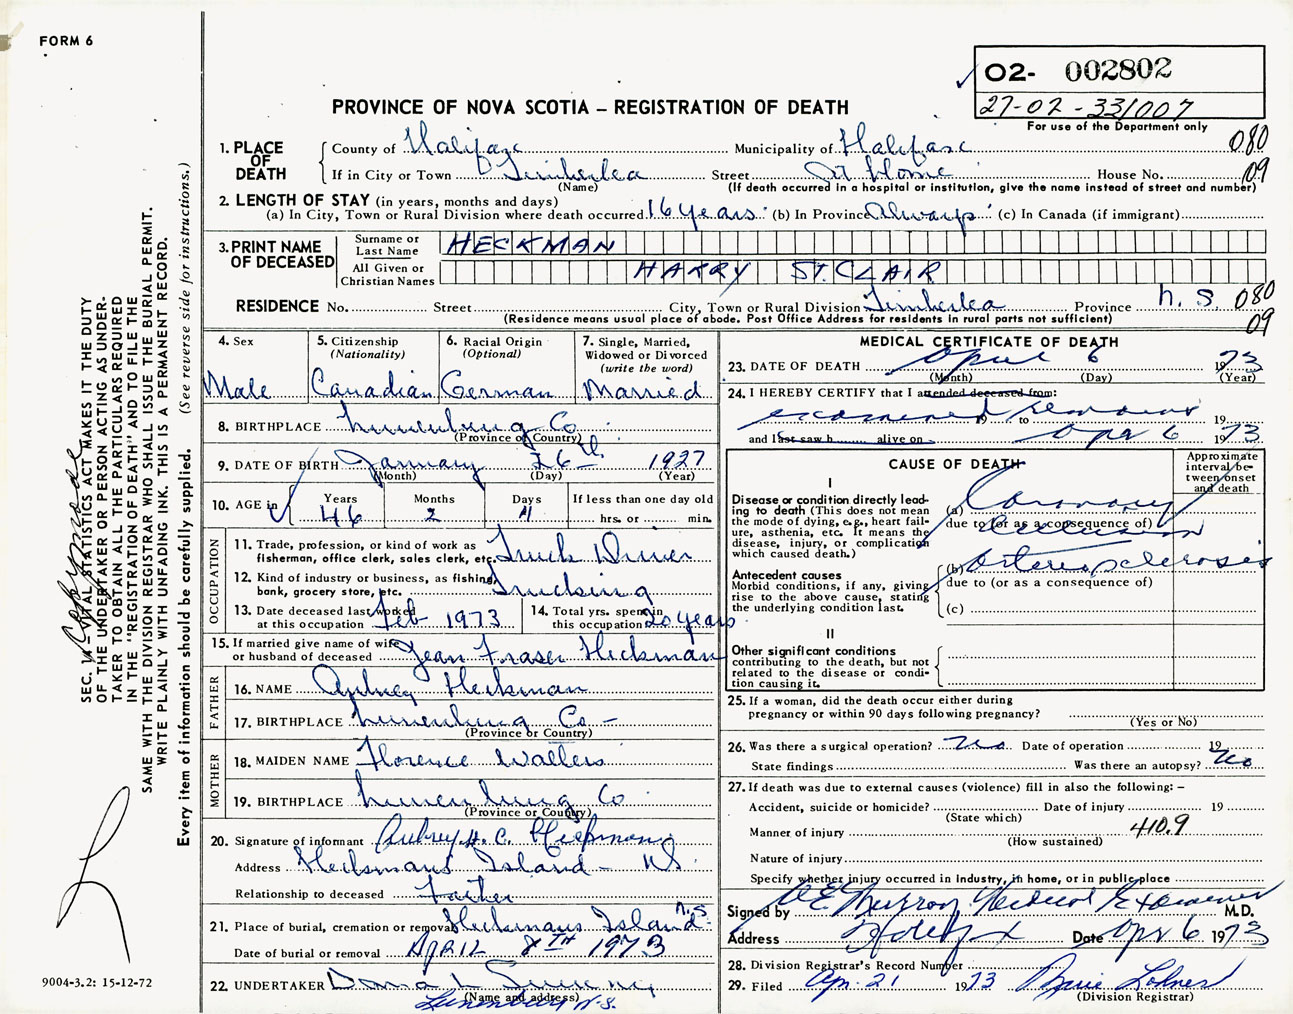 FORM 6
02- 002802
27-02-331007
For use of the Department only
PROVINCE OF NOVA SCOTIA – REGISTRATION OF DEATH
1. PLACE OF DEATH
County of Halifax Municipality of Halifax 080
If in City or Town Timberlea Street At Home House No. 09
(Name) (If death occurred in a hospital or institution, give the name instead of street and number)
2. LENGTH OF STAY (in years, months and days)
(a) In City, Town or Rural Division where death occurred 16 years (b) In Province Always (c) In Canada (if immigrant)
3. PRINT NAME OF DECEASED
Surname or Last Name HECKMAN
All Given or Christian Names HARRY ST. CLAIR
RESIDENCE No. Street City, Town or Rural Division Timberlea Province N.S. 080
(Residence means usual place of abode. Post Office Address for residents in rural parts not sufficient) 09
4. Sex
Male
5. Citizenship
(Nationality)
Canadian
6. Racial Origin
(Optional)
German
7. Single, Married,
Widowed or Divorced
(write the word)
Married
8. BIRTHPLACE Lunenburg Co
(Province or Country)
9. DATE OF BIRTH January 26th 1927
(Month) (Day) (Year)
10. AGE in Years Months Days If less than one day old
46 2 11 hrs. or min.
OCCUPATION
11. Trade, profession, or kind of work as
fisherman, office clerk, sales clerk, etc. Truck Driver
12. Kind of industry or business, as fishing,
bank, grocery store, etc. Trucking
13. Date deceased last worked
at this occupation Feb 1973
14. Total yrs. spent in
this occupation 20 years
15. If married give name of wife
or husband of deceased Jean Fraser Heckman
FATHER
16. NAME Aubrey Heckman
17. BIRTHPLACE Lunenburg Co –
(Province or Country)
MOTHER
18. MAIDEN NAME Florence Walters
19. BIRTHPLACE Lunenburg Co
(Province or Country)
20. Signature of informant Aubrey H. C. Heckman
Address Heckmans Island – NS
Relationship to deceased Father
21. Place of burial, cremation or removal Heckmans Island N.S.
Date of burial or removal APRIL 8TH 1973
22. UNDERTAKER
(Name and address)
Lunenburg N.S.
MEDICAL CERTIFICATE OF DEATH
23. DATE OF DEATH April 6 1973
(Month) (Day) (Year)
24. I HEREBY CERTIFY that I attended deceased from:
examined remains 19 to 19
and last saw h alive on Apr 6 1973
CAUSE OF DEATH
Approximate interval between onset and death
I
Disease or condition directly leading to death (This does not mean the mode of dying, e.g., heart failure, asthenia, etc. It means the disease, injury, or complication which caused death.)
(a) Coronary
due to (or as a consequence of)
occlusion
Antecedent causes
Morbid conditions, if any, giving rise to the above cause, stating the underlying condition last.
(b) Arteriosclerosis
due to (or as a consequence of)
(c)
II
Other significant conditions
contributing to the death, but not related to the disease or condition causing it.
25. If a woman, did the death occur either during
pregnancy or within 90 days following pregnancy?
(Yes or No)
26. Was there a surgical operation? No Date of operation 19
State findings Was there an autopsy? No
27. If death was due to external causes (violence) fill in also the following: –
Accident, suicide or homicide? Date of injury 19
(State which)
Manner of injury 410.9
(How sustained)
Nature of injury
Specify whether injury occurred in Industry, in home, or in public place
Signed by Murray Medical Examiner M.D.
Address Halifax Date Apr 6 1973
28. Division Registrar's Record Number
29. Filed Apr. 21 1973
(Division Registrar)
SEC. 14 – VITAL STATISTICS ACT MAKES IT THE DUTY
OF THE UNDERTAKER OR PERSON ACTING AS UNDER-
TAKER TO OBTAIN ALL THE PARTICULARS REQUIRED
IN THE "REGISTRATION OF DEATH" AND TO FILE THE
SAME WITH THE DIVISION REGISTRAR WHO SHALL ISSUE THE BURIAL PERMIT.
WRITE PLAINLY WITH UNFADING INK. THIS IS A PERMANENT RECORD.
Every item of information should be carefully supplied. (See reverse side for instructions.)
9004-3.2: 15-12-72